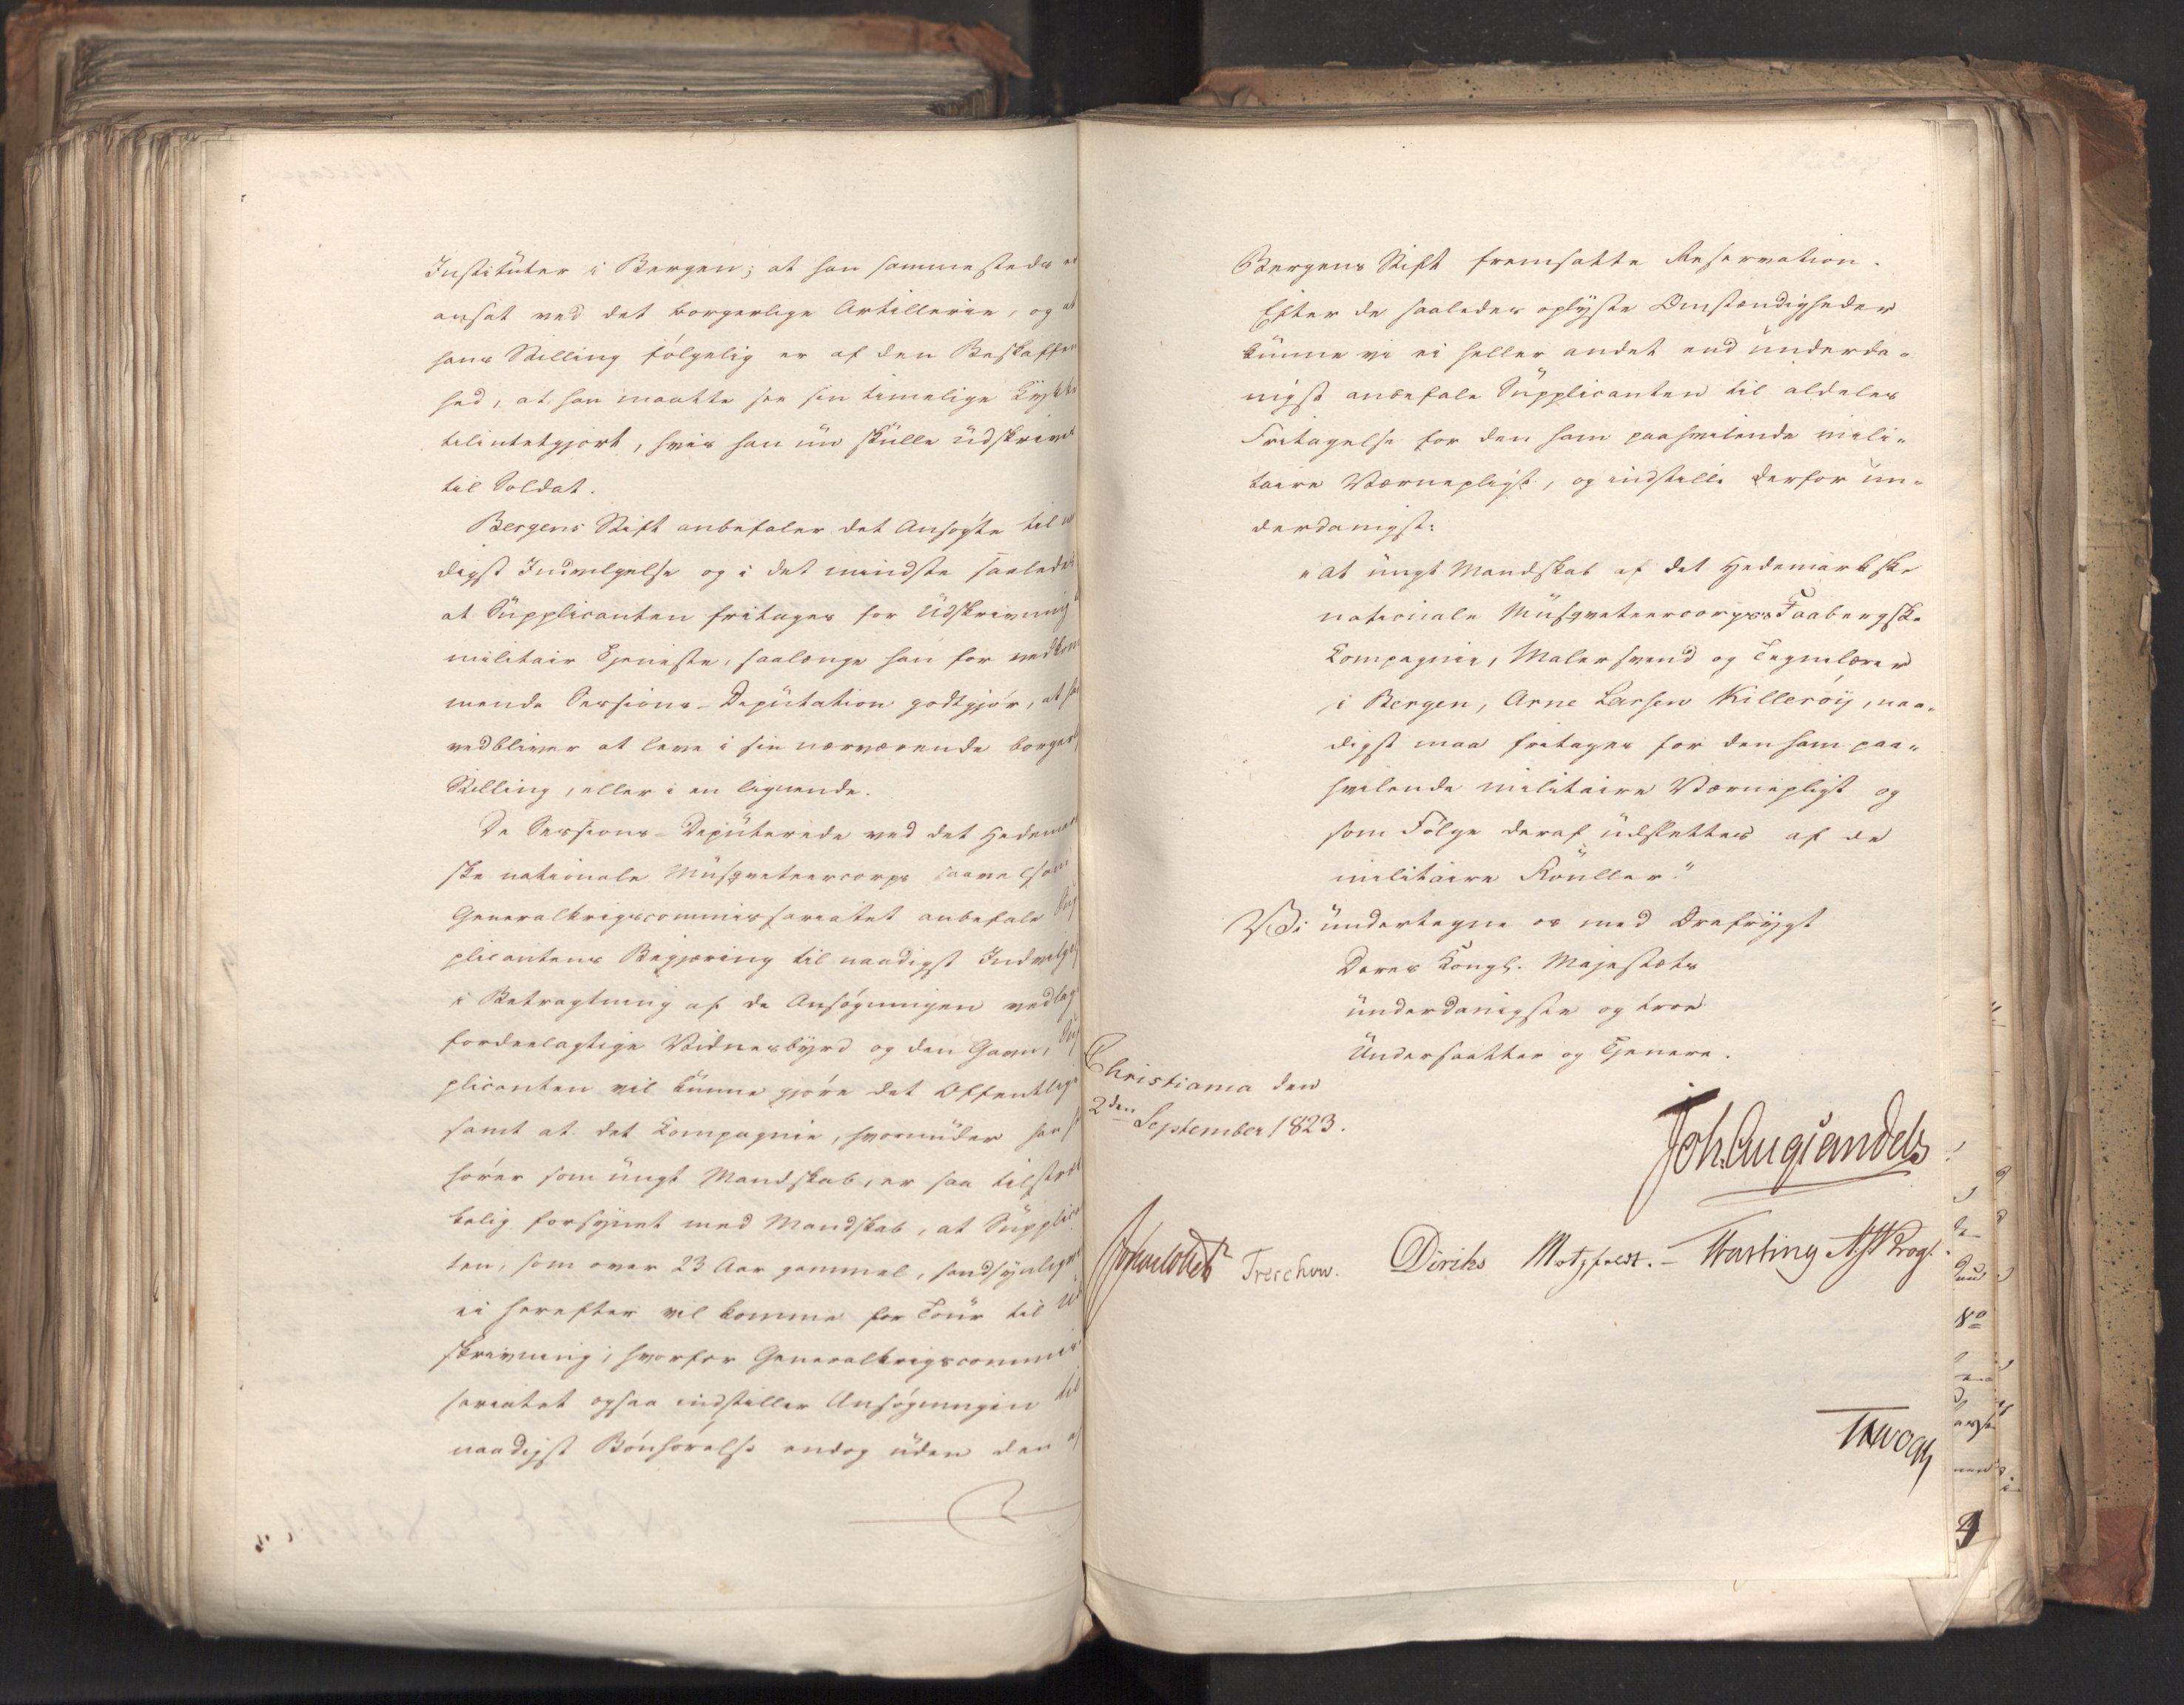 Institüter i Bergen; at han sammesteds er
ansat ved det borgerlige Artillerie, og at
hans Stilling følgelig er af den Beskaffen
hed, at han maatte see sin timelige Lykke
tilintetgjort, hvis han nü skülle üdskrives
til Soldat.
Bergens Stift anbefaler det Ansøgte til
digst Indvilgelse og i det mindste saaledes
at Süpplicanten fritages for Üdskrivning
militair Tjeneste, saalænge han for vedkom
mende Sessions-Depütation godtgjør, at han
vedbliver at leve i sin nærværende borgerl
Stilling, eller i en lignende.
De Sessions-Depüterede ved det Hedemark
ske nationale Müsqveteercorps saavelsom
Generalkrigscommissariatet anbefale Sup
plicantens Begjæring til naadigst Indvilgel
i Betragtning af de Ansøgningen vedlagte
fordeelagtige Vidnesbÿrd og den Gavn, Sup
plicanten vil künne gjøre det Offentlige
samt at det Compagnie, hvoründer han
hører som üngt Mandskab, er saa tilstræk
kelig forsÿnet med Mandskab, at Süpplican
ten, som over 23 Aar gammel, sandsÿnligviis
ei herefter vil komme for Toür til Üd
skrivning; hvorfor Generalkrigscommis
sariatet ogsaa indstiller Ansøgningen til
naadigst Bønhørelse endog üden den af
Bergens Stift fremsatte Reservation.
Efter de saaledes oplÿste Omstændigheder
künne vi ei heller andet end ünderda-
nigst anbefale Süpplicanten til aldeles
Fritagelse for den ham paahvilende mili-
taire Værnepligt, og indstille derfor ün-
derdanigst:
"at üngt Mandskab af det Hedemarkske
nationale Müsqveteercorpses Faabergske
Compagnie, Malersvend og Tegnelærer
i Bergen, Arne Larsen Killerøÿ, naa-
digst maa fritages for den ham paa-
hvilende militaire Værnepligt og
som Følge deraf üdslettes af de
militaire Roüller."
Vi ündertegne os med Ærefrÿgt
Deres Kongl. Majestæts
ünderdanigste og troe
Ündersaatter og Tjenere.
Christiania den
2den September 1823.
Joh. Aug. Sandels
Treschow. Diriks Motzfeldt. Fasting